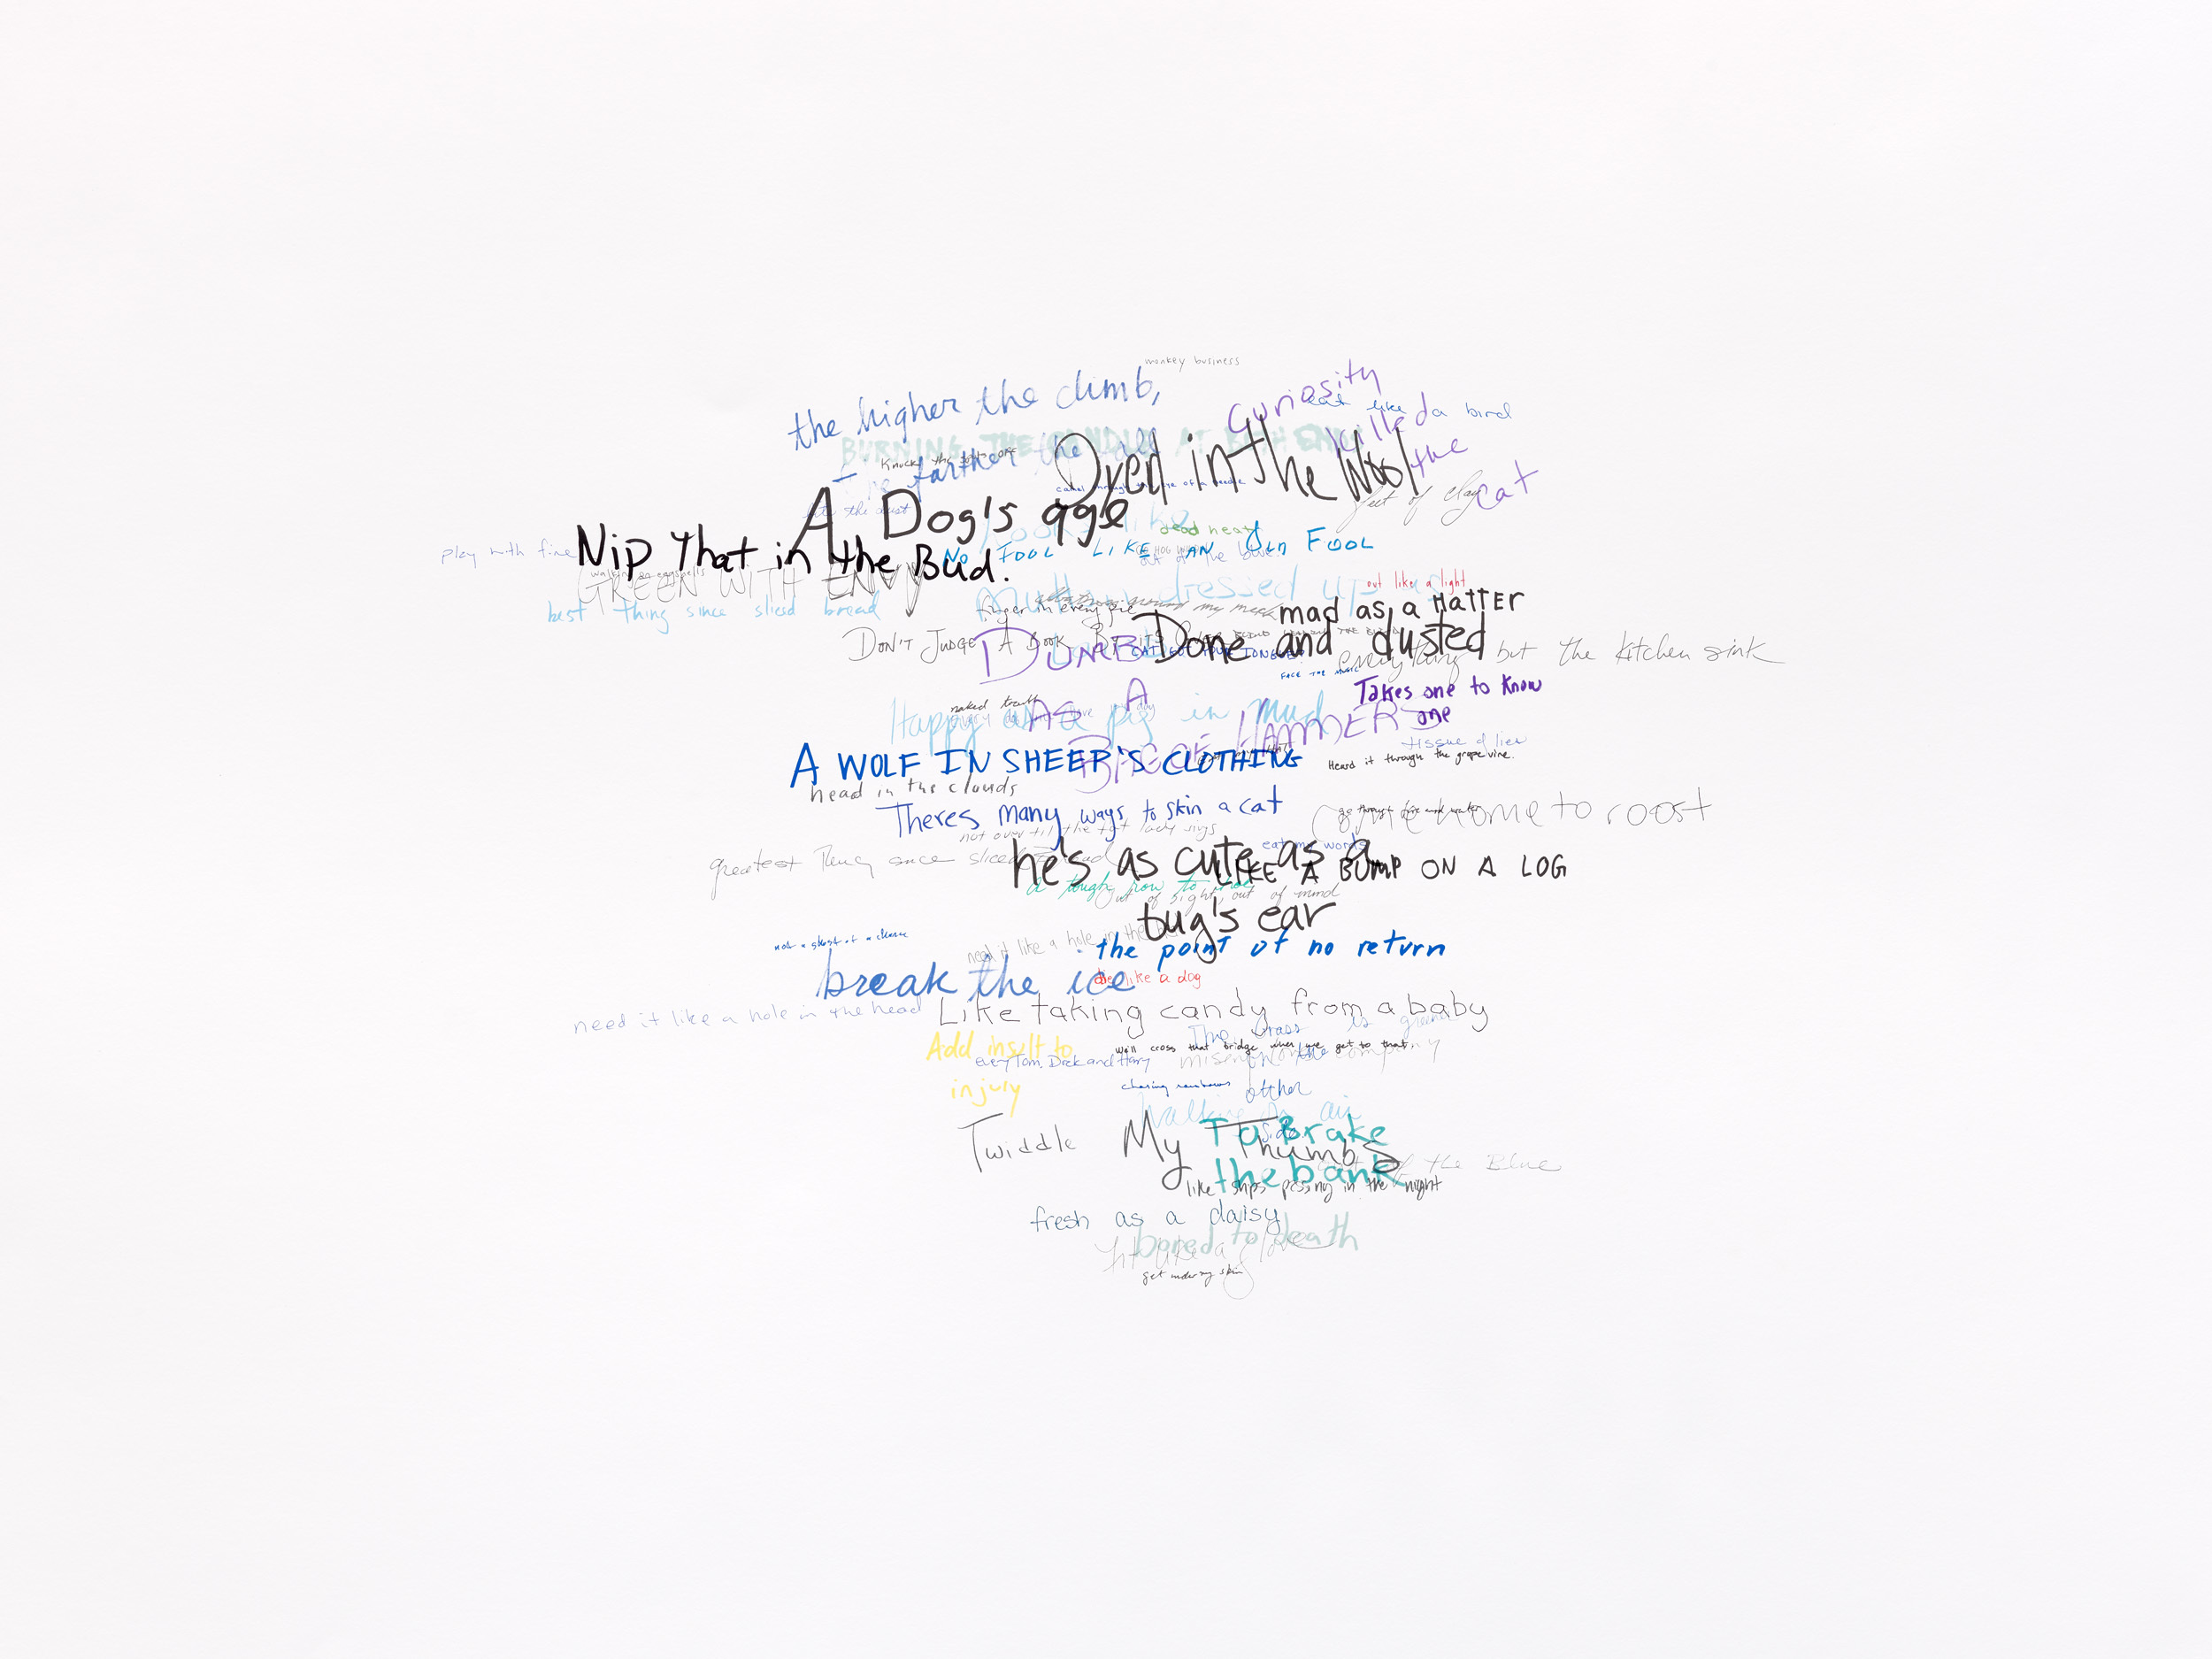 monkey business
the higher the climb,
The farther the fall
Curiosity
killed
the
cat
eat like a bird
BURNING THE CANDLE AT BOTH ENDS
Knocks the socks off
Dyed in the Wool
camel through the eye of a needle
feet of clay
A Dog's age
bite the dust
dead heat
play with fire
Nip That in the Bud.
No FOOL LIKE AN OLD FOOL
out of the blue
walking on eggshells
GREEN WITH ENVY
best thing since slicd bread
Mutton dressed up as
out like a light
finger in every pie
albatross around my neck
mad as a HATTEr
DON'T JUDGE A BOOK BY ITS
Done and dusted
CAT GOT YOUR TONGUE
everything but the kitchen sink
FACE THE MUSIC
DUMB
AS A
HAMMER
Takes one to know
one
naked truth
Happy as a pig in mud
tissue of lies
A WOLF IN SHEEP'S CLOTHING
Heard it through the grape vine.
head in the clouds
Theres many ways to skin a cat
go through fire and water
come to roost
not over til the fat lady sings
eat my words
greatest thing since sliced bread
he's as cute as a
bug's ear
LIKE A BUMP ON A LOG
a tough row to hoe
out of sight, out of mind
not a ghost of a chance
need it like a hole in the head
the point of no return
break the ice
die like a dog
need it like a hole in the head
Like taking candy from a baby
The Grass is greener
on the
other
side
Add insult to
injury
we'll cross that bridge when we get to that
every Tom, Dick and Harry
misery company
chasing rainbows
Walking on air
Twiddle My Thumbs
To Brake
the bank
out of the Blue
like ships passing in the night
fresh as a daisy
bored to death
fit like a glove
get under my skin